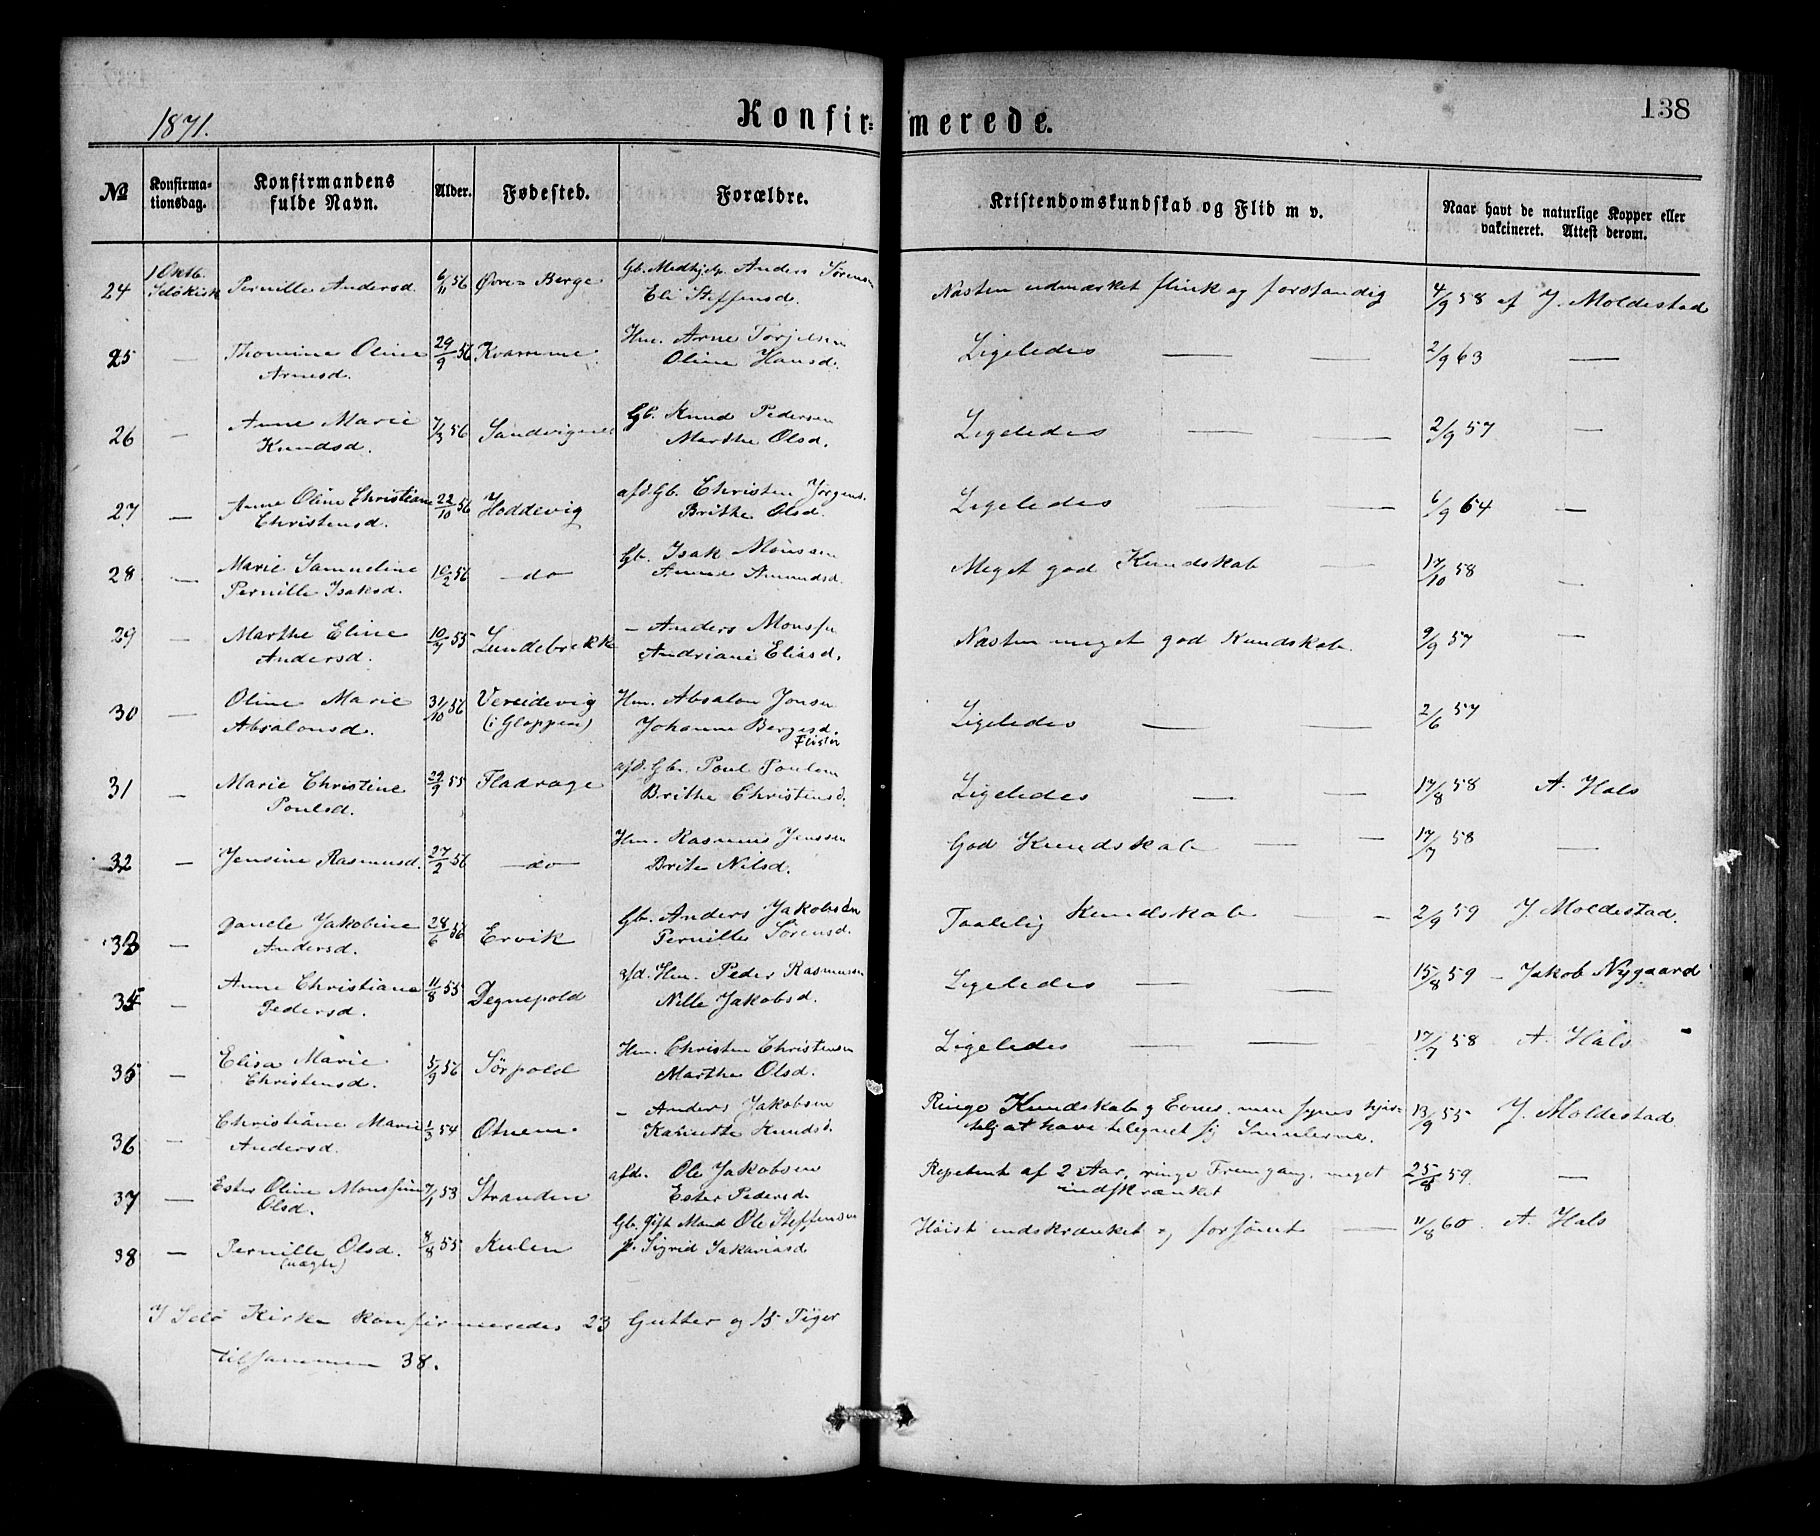 1871.
Konfir=merede.
138
No
Konfirma-
tionsdag.
Konfirmandens
fulde Navn.
Alder.
Fødested.
Forældre.
Kristendomskundskab og Flid m v.
Naar havt de naturlige Kopper eller
vakcineret. Attest derom.
24 1 Oktb. Selökirk Pernille Andersd. 6/11 56 Övre-Berge Gb. Medhjelp. Anders Sørensen
Eli Steffensd. Næsten udmærket flink og forstandig 4/9 58 af J. Moldestad
25 — Thomine Oline 29/9 56 Kvamme. Hm. Arne Torjelsen Ligeledes — — 2/9 63 —
Arnesd. Oline Hansd.
26 — Anne Marie 7/3 56 Sandvignes Gb. Knud Pedersen Ligeledes — — 2/9 57 —
Knudsd. Marthe Olsd.
27 — Anne Oline Christiane 22/10 56 Hoddevig afd. Gb. Christen Jørgens. Ligeledes — — 6/9 64 —
Christensd. Brithe Olsd.
28 — Marie Samueline 10/2 56 — do Gb. Isak Mónssen Meget god Kundskab — 17/10 58 —
Pernille Isaksd. Amundsd.
29 — Marthe Eline 10/9 55 Lundebrekke — Anders Monsen Næsten meget god Kundskab. 9/9 57 —
Andersd. Andriane Eliasd.
30 — Oline Marie 31/10 56 Vereidevig Hm. Absalon Jonsen Ligeledes — — 2/6 57
Absalonsd. (i Gloppen) Johanne Bergesd.
31 — Marie Christine 29/9 55 Fladrage afd. Gb. Poul Poulsen Ligeledes — — 17/8 58 A. Hals
Poulsd. Brithe Christensd.
32 — Jensine Rasmusd. 27/2 56 — do Hm. Rasmus Jenssen God Kundskab — — 17/7 58 —
Brite Nilsd.
33 — Jakobine 28/6 56 Ervik Gb. Anders Jakobsen Taalelig Kundskab — - 2/9 59 J. Moldestad.
Andersd. Pernille Sørensd.
34 — Anne Christiane 11/8 55 Degnepold afd. Hm. Peder Rasmussen Ligeledes — — 15/8 59 - Jakob Nygaard
Pedersd. Nille Jakobsd.
35 — Elisa Marie 5/9 56 Sørpold Hm. Christen Christensen Ligeledes — — 17/7 58 A. Hals
Christensd. Marthe Olsd.
36 — Christiane Marie 1/3 54 Otnem — Anders Jakobsen Ringe Kundskab og Evner, men synes 13/9 55 J. Moldestad
Andersd. Knudsd. at have tilegnet sig
37 — Ester Oline Monsine 7/1 53 Stranden afd. Ole Jakobsen Repetent af 2 Aar, ringe Fremgang, meget 25/8 59. —
Olsd. Ester Pedersd. indskrænket
38 — Pernille Olsd. 8/8 55 Kulen Gb. gift Mand Ole Steffensen Høist indskrænket og forsømt — 11/8 60. A. Hals
(uægte) p. Sigrid Sakariasd
I Selö Kirke konfirmeredes 23 Gutter og 15 Piger
tilsammen 38.